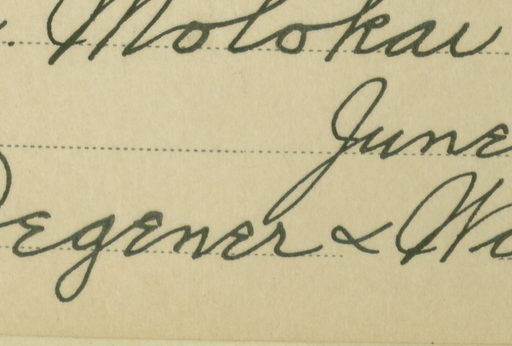 . Molokai
June
Degener & W